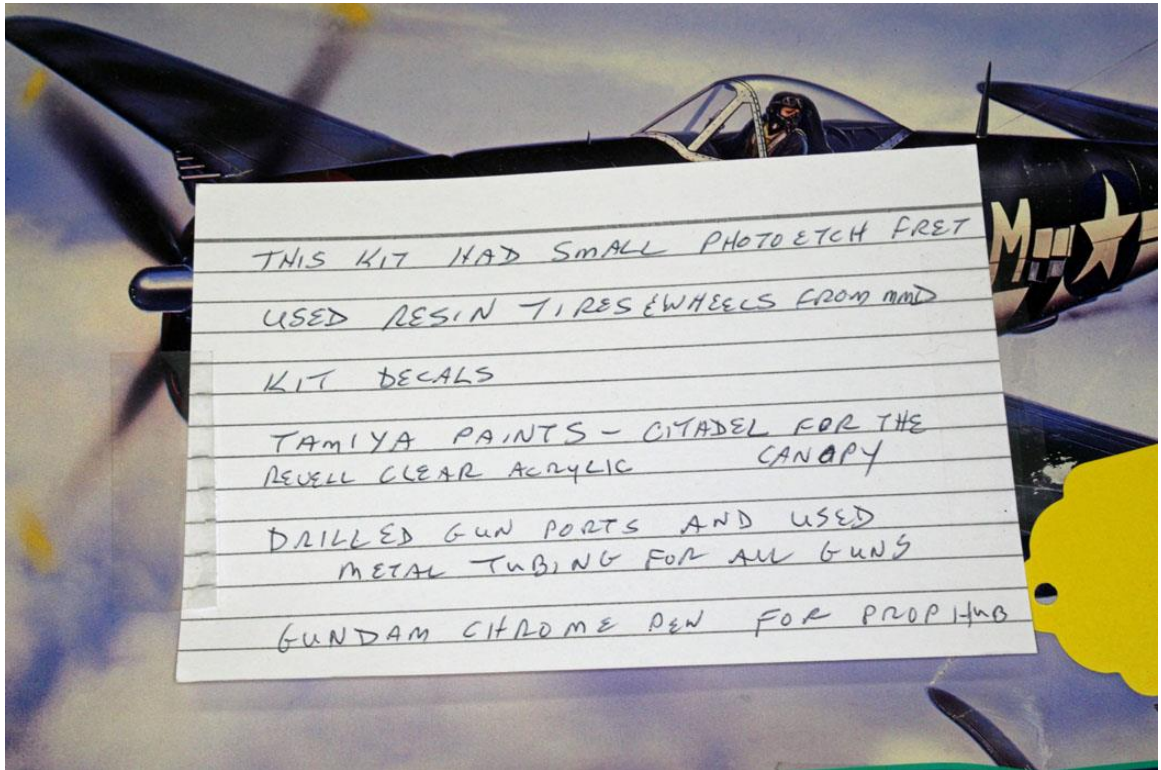 THIS KIT HAD SMALL PHOTO ETCH FRET
USED RESIN TIRES & WHEELS FROM MMD
KIT DECALS
TAMIYA PAINTS - CITADEL FOR THE
REVELL CLEAR ACRYLIC CANOPY
DRILLED GUN PORTS AND USED
METAL TUBING FOR ALL GUNS
GUNDAM CHROME PEN FOR PROP HUB
M